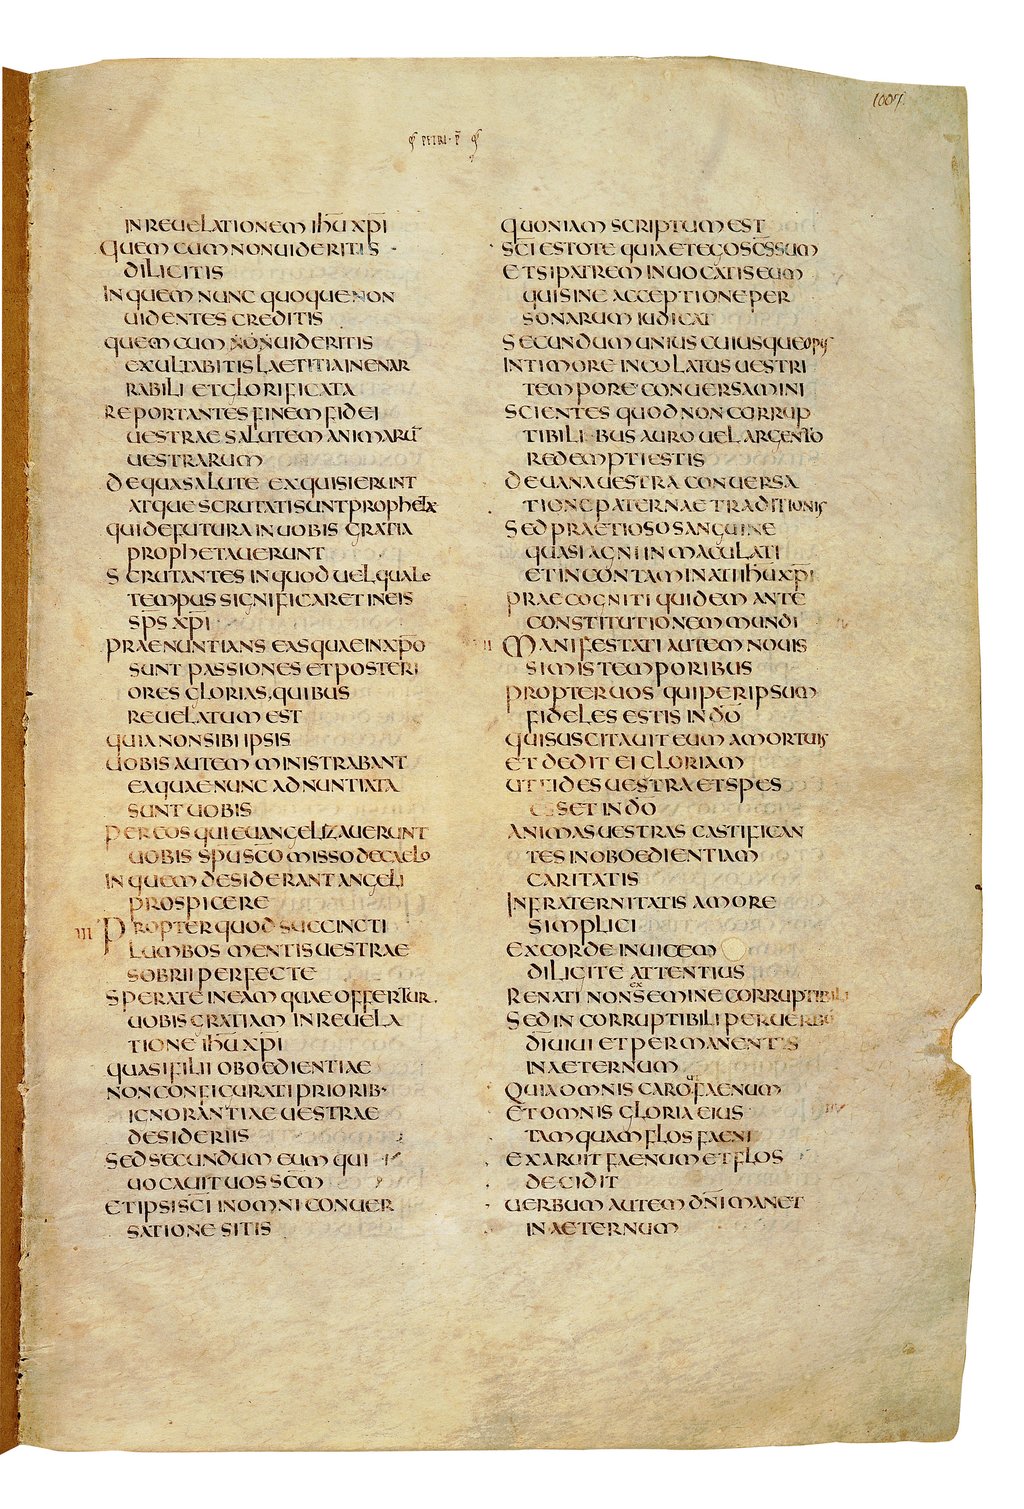 1007
PETRI · P̄
IN REUELATIONEM IHŪ XPĪ
QUEM CUM NON UIDERITIS
DILIGITIS
IN QUEM NUNC QUOQUE NON
UIDENTES CREDITIS
QUEM CUM NON UIDERITIS
EXULTABITIS LAETITIA INENAR
RABILI ET GLORIFICATA
REPORTANTES FINEM FIDEI
UESTRAE SALUTEM ANIMARŪ
UESTRARUM
DE QUA SALUTE EXQUISIERUNT
ATQUE SCRUTATI SUNT PROPHETAE
QUI DE FUTURA IN UOBIS GRATIA
PROPHETAUERUNT
SCRUTANTES IN QUOD UEL QUALE
TEMPUS SIGNIFICARET IN EIS
SP̄S XPĪ
PRAENUNTIANS EAS QUAE IN XP̄O
SUNT PASSIONES ET POSTERI
ORES GLORIAS QUIBUS
REUELATUM EST
QUIA NON SIBI IPSIS
UOBIS AUTEM MINISTRABANT
EA QUAE NUNC ADNUNTIATA
SUNT UOBIS
PER EOS QUI EUANGELIZAUERUNT
UOBIS SPŪ SC̄O MISSO DE CAELO
IN QUEM DESIDERANT ANGELI
PROSPICERE
III PROPTER QUOD SUCCINCTI
LUMBOS MENTIS UESTRAE
SOBRII PERFECTE
SPERATE IN EAM QUAE OFFERTUR
UOBIS GRATIAM IN REUELA
TIONE IHŪ XPĪ
QUASI FILII OBOEDIENTIAE
NON CONFIGURATI PRIORIB·
IGNORANTIAE UESTRAE
DESIDERIIS
SED SECUNDUM EUM QUI
UOCAUIT UOS SC̄M
ET IPSI SC̄I IN OMNI CONUER
SATIONE SITIS
QUONIAM SCRIPTUM EST
SC̄I ESTOTE QUIA ET EGO SC̄S SUM
ET SI PATREM INUOCATIS EUM
QUI SINE ACCEPTIONE PER
SONARUM IUDICAT
SECUNDUM UNIUS CUIUSQUE OPUS
IN TIMORE INCOLATUS UESTRI
TEMPORE CONUERSAMINI
SCIENTES QUOD NON CORRUP
TIBILIBUS AURO UEL ARGENTO
REDEMPTI ESTIS
DE UANA UESTRA CONUERSA
TIONE PATERNAE TRADITIONIS
SED PRAETIOSO SANGUINE
QUASI AGNI INMACULATI
ET INCONTAMINATI IHŪ XPĪ
PRAECOGNITI QUIDEM ANTE
CONSTITUTIONEM MUNDI
MANIFESTATI AUTEM NOUIS
SIMIS TEMPORIBUS
PROPTER UOS QUI PER IPSUM
FIDELES ESTIS IN D̄O
QUI SUSCITAUIT EUM A MORTUIS
ET DEDIT EI GLORIAM
UT FIDES UESTRA ET SPES
ESSET IN D̄O
ANIMAS UESTRAS CASTIFICAN
TES IN OBOEDIENTIAM
CARITATIS
IN FRATERNITATIS AMORE
SIMPLICI
EX CORDE INUICEM
DILIGITE ATTENTIUS
RENATI NON EX SEMINE CORRUPTIBILI
SED INCORRUPTIBILI PER UERBŪ
D̄I UIUI ET PERMANENTIS
IN AETERNUM
QUIA OMNIS CARO UT FAENUM
ET OMNIS GLORIA EIUS
TAMQUAM FLOS FAENI
EXARUIT FAENUM ET FLOS
DECIDIT
UERBUM AUTEM DN̄I MANET
IN AETERNUM